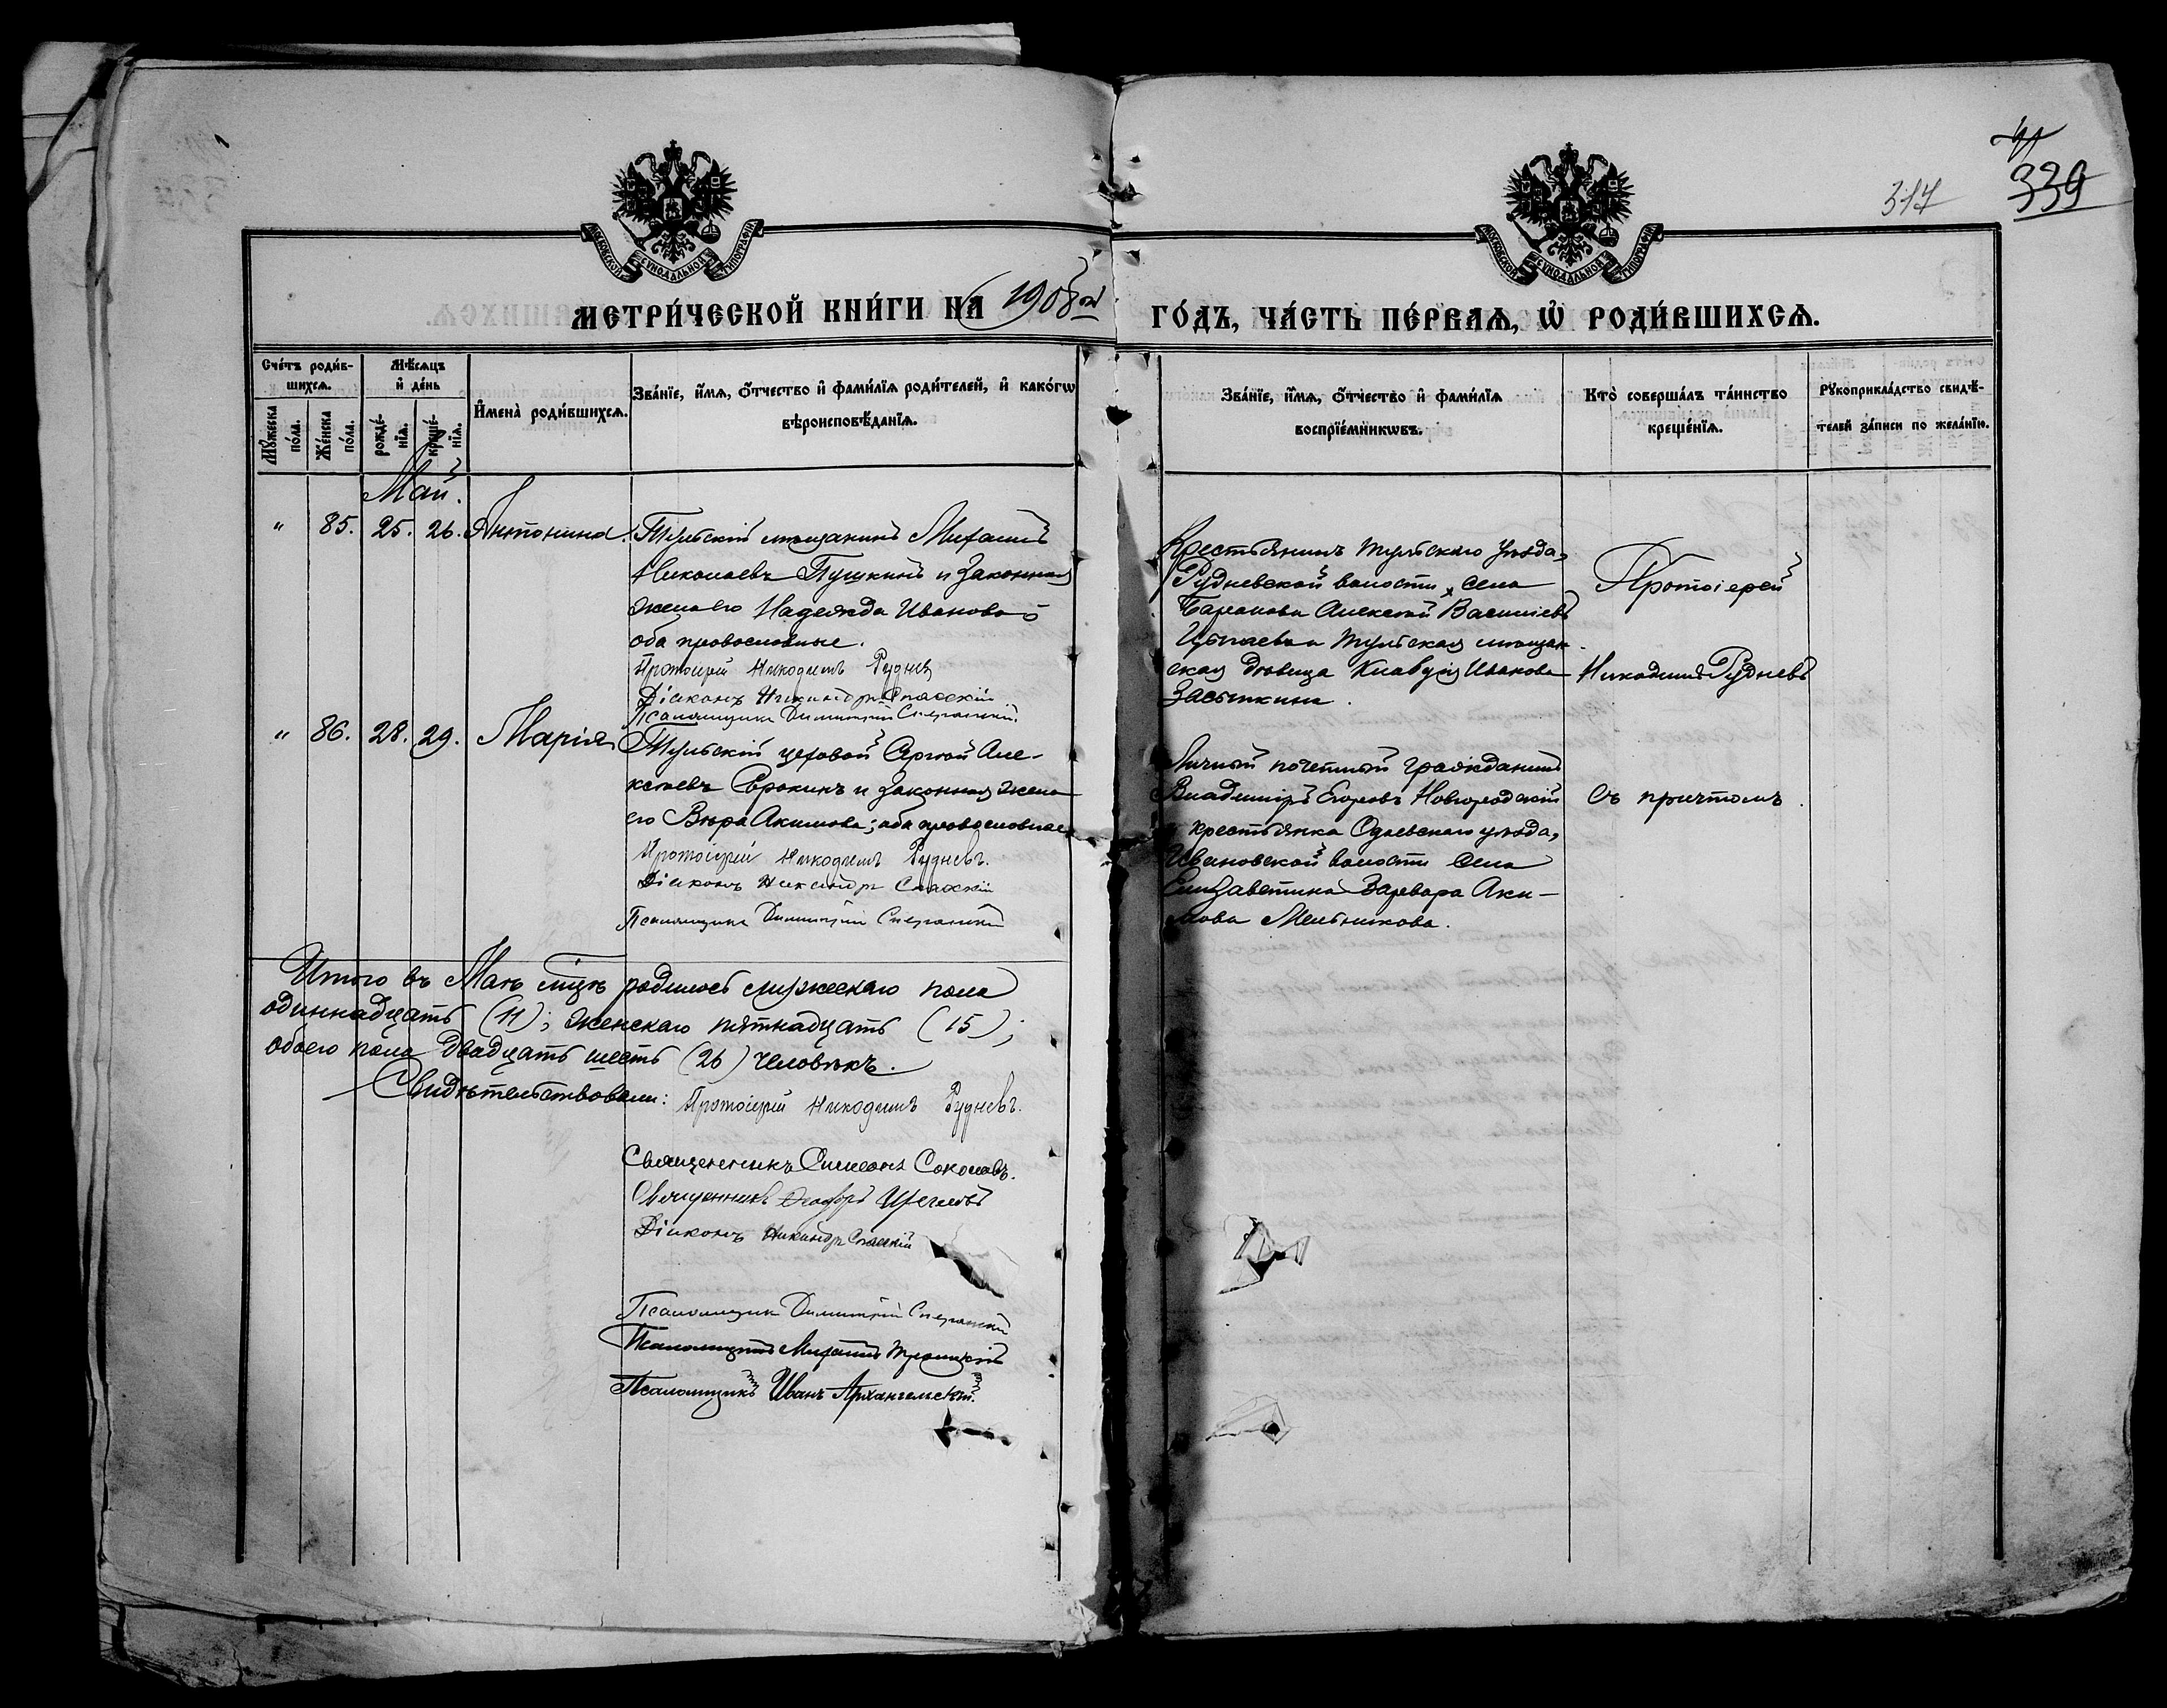 317
339
МОСКОВСКОЙ СѴНОДАЛЬНОЙ ТИПОГРАФІИ
МОСКОВСКОЙ СѴНОДАЛЬНОЙ ТИПОГРАФІИ
МЕТРИ́ЧЕСКОЙ КНИ́ГИ НА 1908й
ГО́ДЪ, ЧА́СТЬ ПЕ́РВАѦ, Ѡ҆ РОДИ́ВШИХСѦ.
Сче́тъ роди́в-
шихсѧ.
Мꙋ́жеска по́ла.
Же́нска по́ла.
Мѣ́сѧцъ
и҆ де́нь
рожде́-
нїѧ.
креще́-
нїѧ.
И҆мена̀ роди́вшихсѧ.
Зва́нїе, и҆́мѧ, ѻ҆́тчество и҆ фами́лїѧ роди́телей, и҆ како́гѡ
вѣроисповѣ́данїѧ.
Зва́нїе, и҆́мѧ, ѻ҆́тчество и҆ фами́лїѧ
воспрїе́мникѡвъ.
Кто̀ соверша́лъ та́инство
креще́нїѧ.
Рꙋкоприкла́дство свидѣ́-
телей за́писи по жела́нїю.
Май.
" 85. 25. 26. Антонина.
Тульскій мѣщанинъ Михаилъ
Николаевъ Пушкинъ и законная
жена его Надежда Иванова
оба православные.
Протоіерей Никодимъ Руднев
Діаконъ Никандръ Спасскій
Псаломщикъ Димитрій Сперанскій
Крестьянинъ Тульскаго уѣзда,
Рудневской волости, села
Баранова Алексѣй Васильевъ
и Тульская мѣщан-
ская дѣвица Клавдія Иванова
Протоіерей
Никодимъ Рудневъ
" 86. 28. 29. Марія
Тульскій цеховой Сергѣй Але-
ксѣевъ Сорокинъ и законная жена
его Вѣра Акимова; оба православные
Протоіерей Никодимъ Рудневъ.
Діаконъ Никандръ Спасскій
Псаломщикъ Димитрій Сперанскій
Личный почетный гражданинъ
Владиміръ Егоровъ Новгородскій
и крестьянка Одоевскаго уѣзда,
Ивановской волости села
Елизаветина Варвара Аки-
мова Мельникова.
съ причтомъ.
Итого въ Маѣ мѣцѣ родилось мужескаго пола
одиннадцать (11); женскаго пятнадцать (15);
обоего пола двадцать шесть (26) человѣкъ.
Свидѣтельствовали: Протоіерей Никодимъ Рудневъ.
Священникъ Симеонъ Соколовъ.
Священникъ Ѳеодоръ
Діаконъ Никандръ Спасскій
Псаломщикъ Димитрій Сперанскій
Псаломщикъ Михаилъ Троицкій
Псаломщикъ Иванъ Архангельскій.